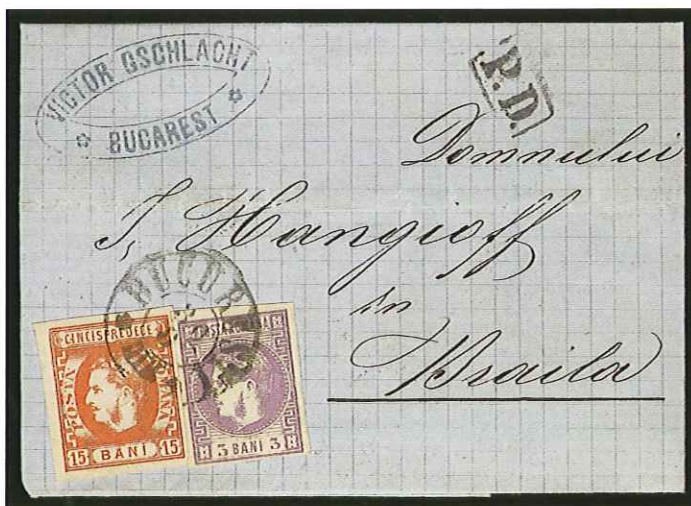 VICTOR GSCHLACHT
BUCAREST
P.D.
Domnului
I. Hangioff
in
Braila
BUCUR
CINCISPREDECE
POSTA ROMANA
15 BANI 15
POSTA ROMANA
3 BANI 3